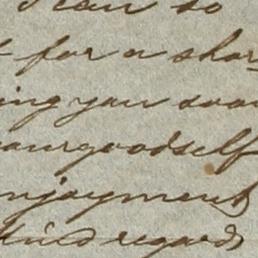 I can so
for a shor
ing you soon
yourgoodself
njoyment
kind regards